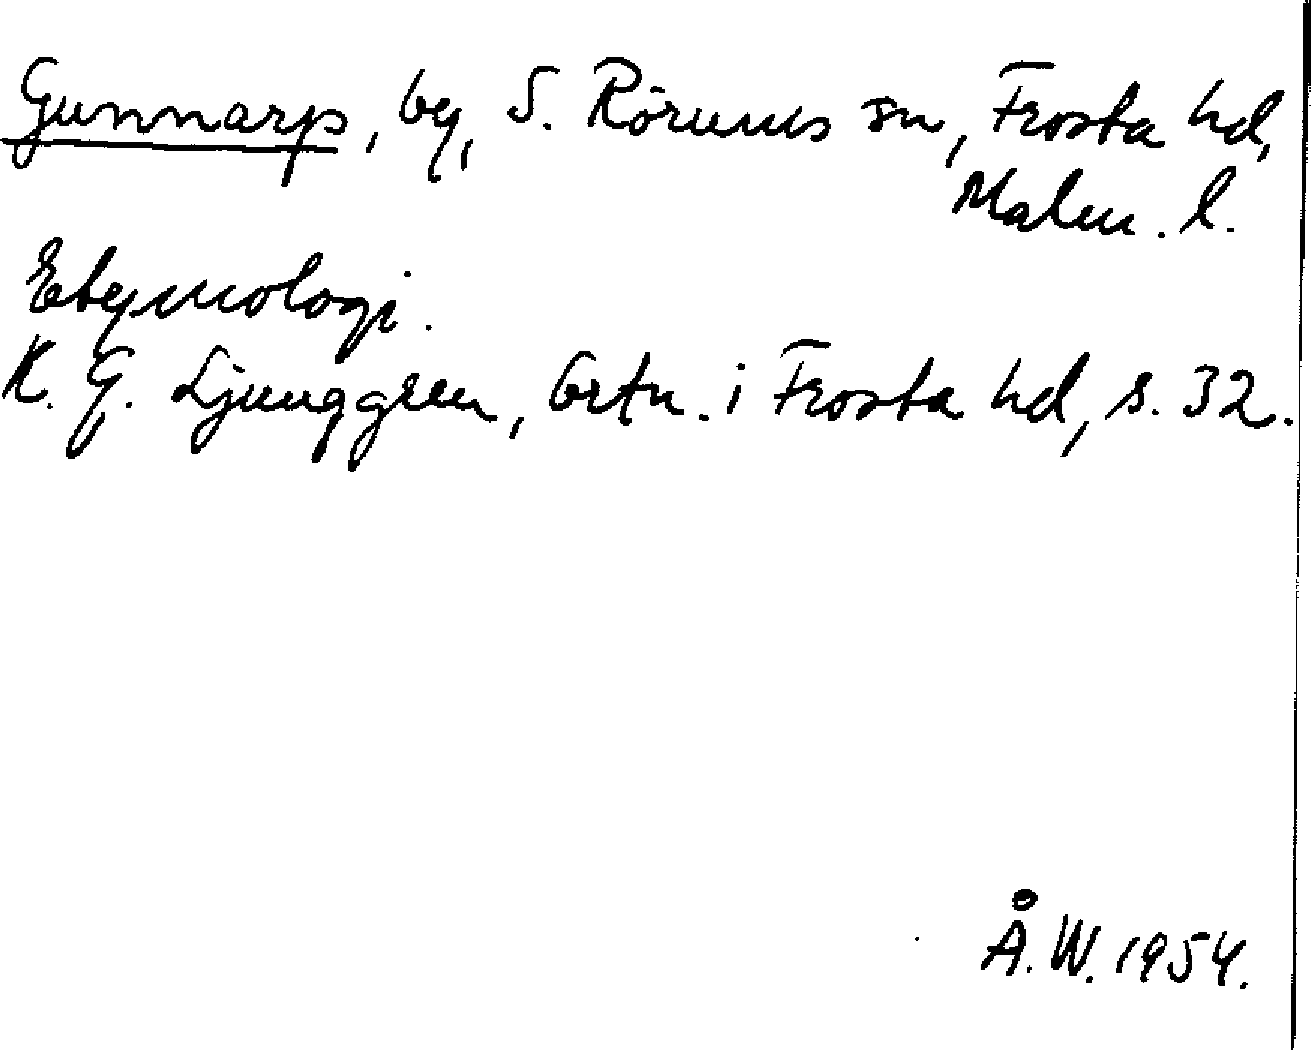 Gunnarp, by, S. Rörums sn, Frosta hd,
Malm. l.
Etymologi.
K. G. Ljunggren, Ortn. i Frosta hd, s. 32.
Å. W. 1954.